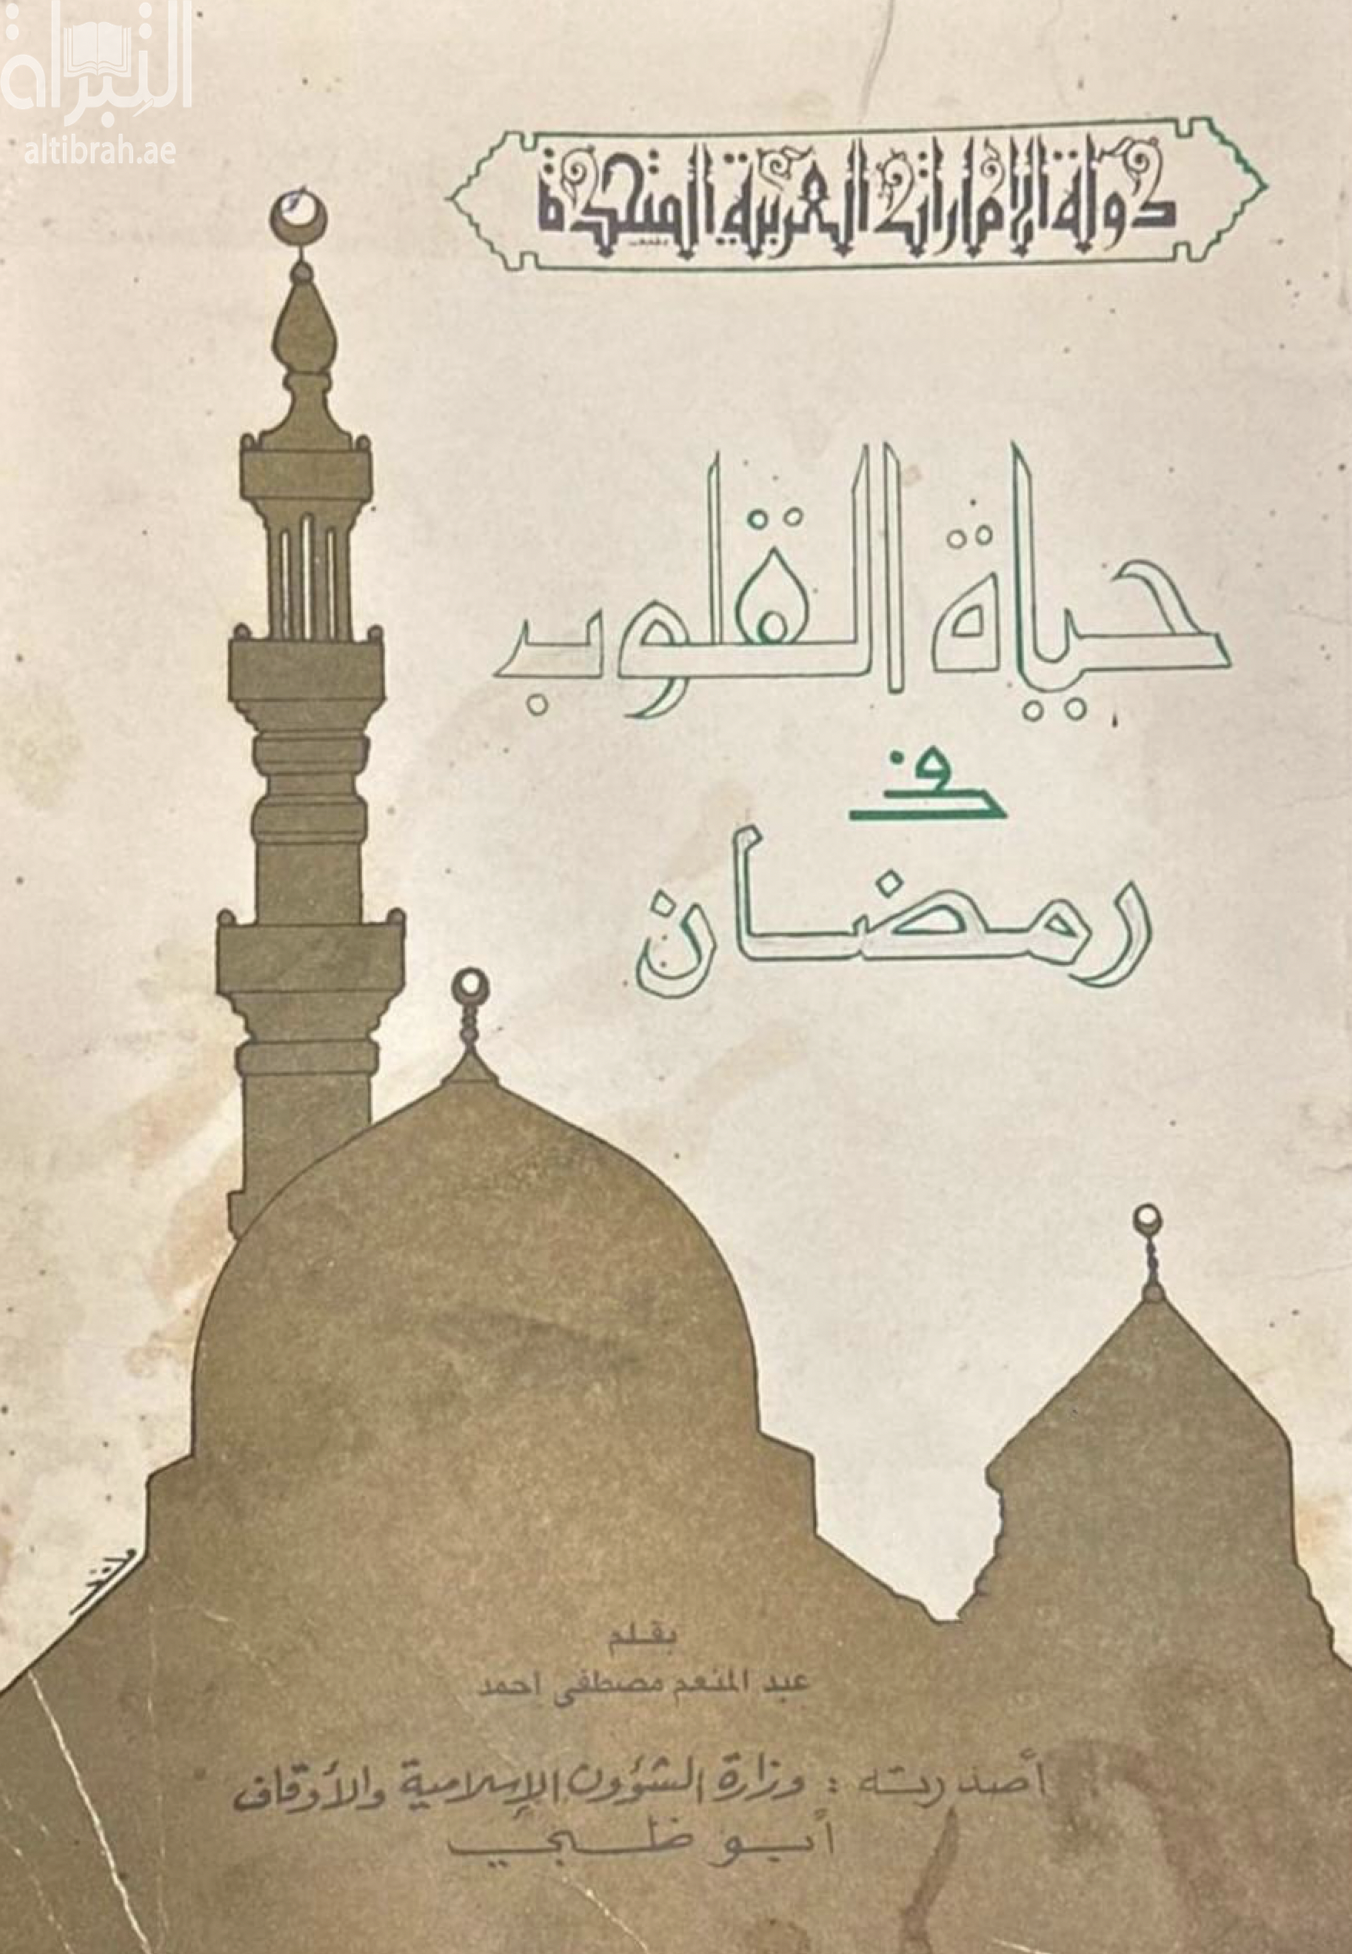 التبراة
altibrah.ae
دولة الإمارات العربية المتحدة
حياة القلوب
في
رمضان
بقلم
عبد المنعم مصطفى احمد
أصدرته : وزارة الشؤون الإسلامية والأوقاف
أبو ظبي